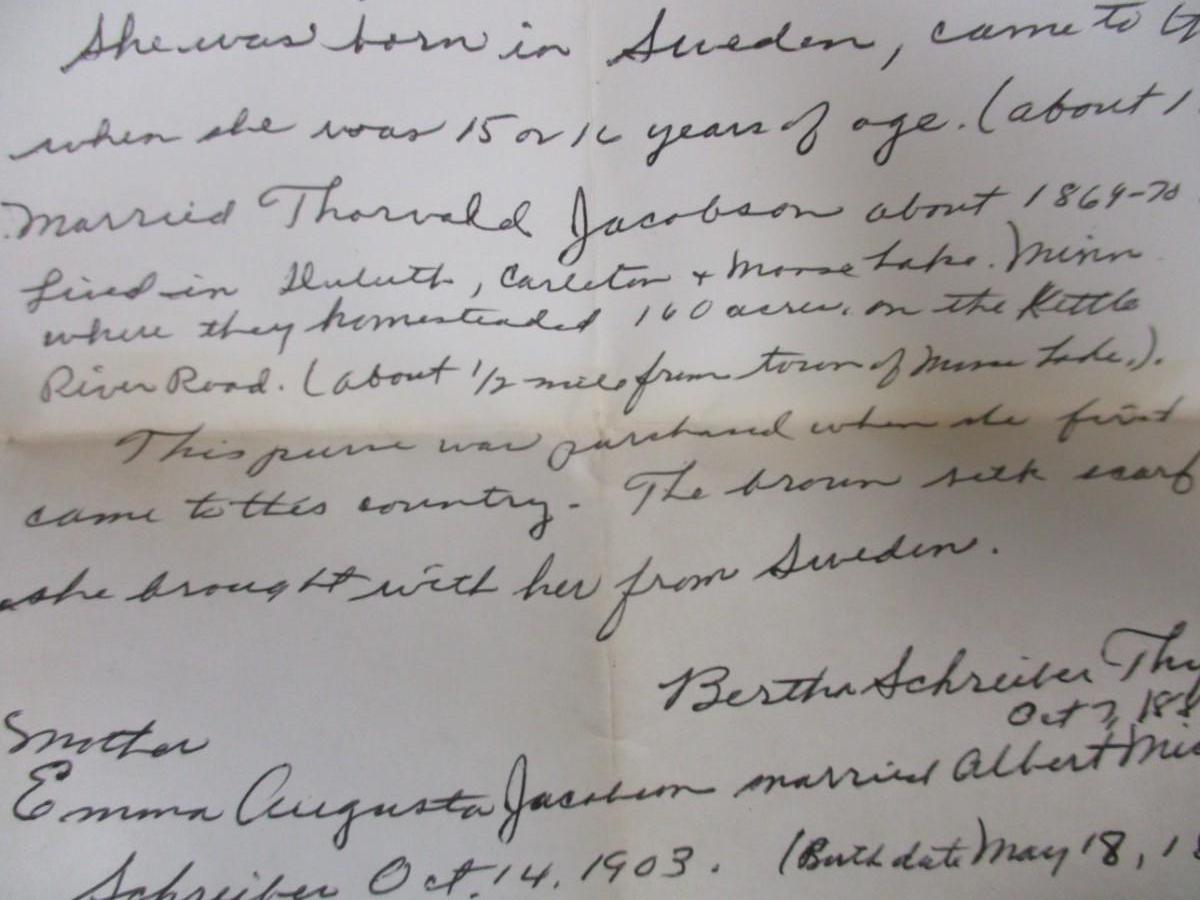 She was born in Sweden, came to
when she was 15 or 16 years of age. (about 1
Married Thorvald Jacobson about 1869-70
Lived in Duluth, Carleton + Moose Lake. Minn
where they homesteaded 160 acres, on the Kettle
River Road. (about 1/2 mile from town of Moose Lake.).
This purse was purchased when she first
came to this country - The brown silk scarf
she brought with her from Sweden.
Bertha Schreiber Thy
Oct 7, 188
Mother
Emma Augusta Jacobson married Albert
Schreiber Oct. 14, 1903. (Birthdate May 18, 1